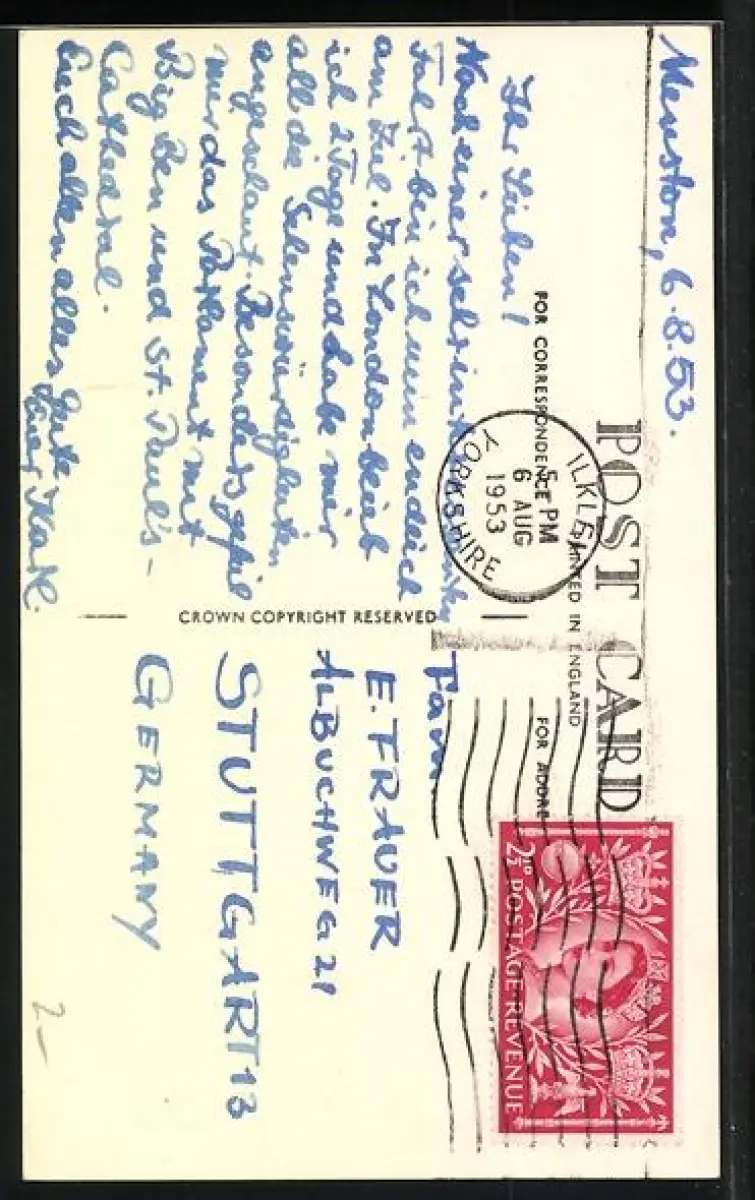 POST CARD
Menston, 6.8.53.
FOR CORRESPONDENCE
PRINTED IN ENGLAND
FOR ADDRE
Ihr Lieben!
Nach einer sehr
Fahrt bin ich nun endlich
am Ziel. In London blieb
ich 2 Tage und habe mir
all die Sehenswürdigkeiten
angeschaut. Besonders gefiel
mir das Parlament mit
Big Ben und St. Paul's-
Cathedral.
Euch allen alles Gute
Euer Karl.
ILKLEY
5- PM
6 AUG
1953
YORKSHIRE
CROWN COPYRIGHT RESERVED
2½D POSTAGE REVENUE
Fam.
E. FRAUER
ALBUCHWEG 21
STUTTGART 13
GERMANY
2-